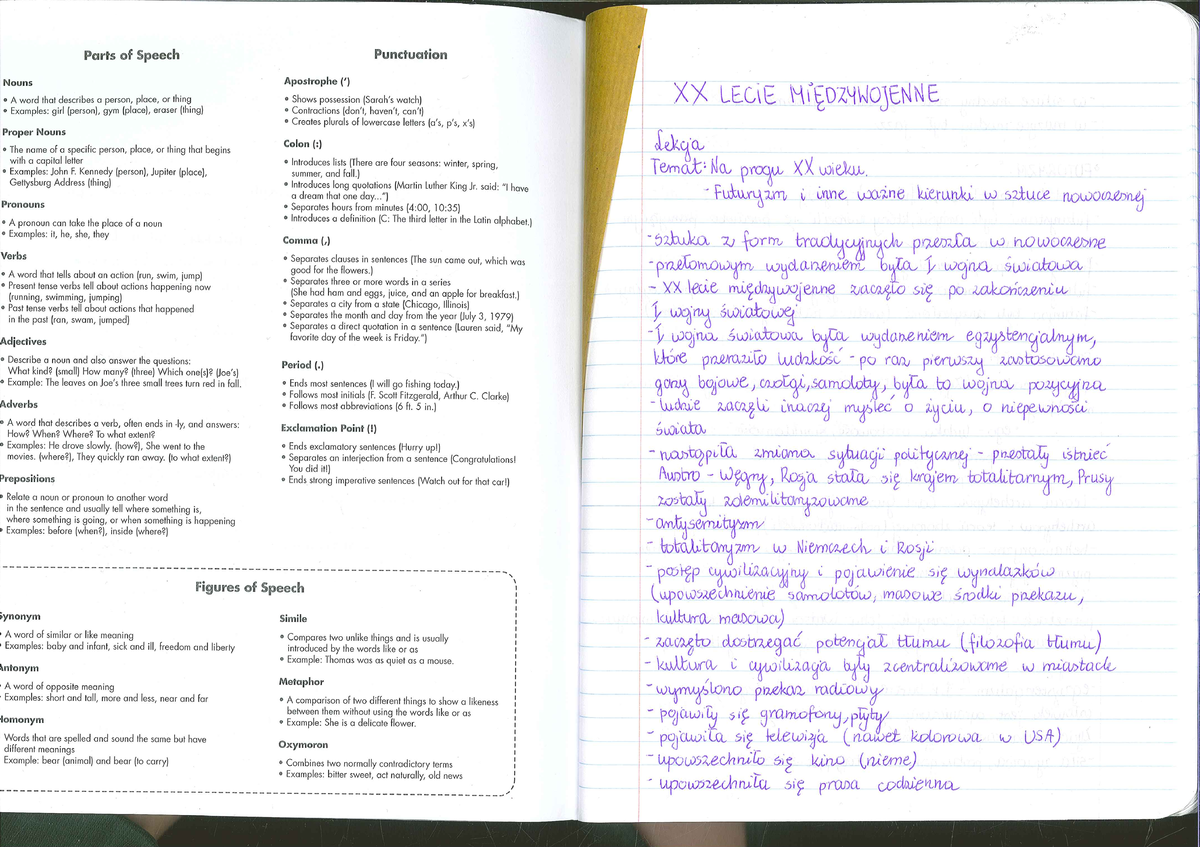 Parts of Speech
Nouns
• A word that describes a person, place, or thing
• Examples: girl (person), gym (place), eraser (thing)
Proper Nouns
• The name of a specific person, place, or thing that begins
with a capital letter
• Examples: John F. Kennedy (person), Jupiter (place),
Gettysburg Address (thing)
Pronouns
• A pronoun can take the place of a noun
• Examples: it, he, she, they
Verbs
• A word that tells about an action (run, swim, jump)
• Present tense verbs tell about actions happening now
(running, swimming, jumping)
• Past tense verbs tell about actions that happened
in the past (ran, swam, jumped)
Adjectives
• Describe a noun and also answer the questions:
What kind? (small) How many? (three) Which one(s)? (Joe's)
• Example: The leaves on Joe's three small trees turn red in fall.
Adverbs
• A word that describes a verb, often ends in -ly, and answers:
How? When? Where? To what extent?
• Examples: He drove slowly. (how?), She went to the
movies. (where?), They quickly ran away. (to what extent?)
Prepositions
• Relate a noun or pronoun to another word
in the sentence and usually tell where something is,
where something is going, or when something is happening
• Examples: before (when?), inside (where?)
Punctuation
Apostrophe (')
• Shows possession (Sarah's watch)
• Contractions (don't, haven't, can't)
• Creates plurals of lowercase letters (a's, p's, x's)
Colon (:)
• Introduces lists (There are four seasons: winter, spring,
summer, and fall.)
• Introduces long quotations (Martin Luther King Jr. said: "I have
a dream that one day...")
• Separates hours from minutes (4:00, 10:35)
• Introduces a definition (C: The third letter in the Latin alphabet.)
Comma (,)
• Separates clauses in sentences (The sun came out, which was
good for the flowers.)
• Separates three or more words in a series
(She had ham and eggs, juice, and an apple for breakfast.)
• Separates a city from a state (Chicago, Illinois)
• Separates the month and day from the year (July 3, 1979)
• Separates a direct quotation in a sentence (Lauren said, "My
favorite day of the week is Friday.")
Period (.)
• Ends most sentences (I will go fishing today.)
• Follows most initials (F. Scott Fitzgerald, Arthur C. Clarke)
• Follows most abbreviations (6 ft. 5 in.)
Exclamation Point (!)
• Ends exclamatory sentences (Hurry up!)
• Separates an interjection from a sentence (Congratulations!
You did it!)
• Ends strong imperative sentences (Watch out for that car!)
Figures of Speech
Synonym
• A word of similar or like meaning
• Examples: baby and infant, sick and ill, freedom and liberty
Antonym
• A word of opposite meaning
• Examples: short and tall, more and less, near and far
Homonym
Words that are spelled and sound the same but have
different meanings
Example: bear (animal) and bear (to carry)
Simile
• Compares two unlike things and is usually
introduced by the words like or as
• Example: Thomas was as quiet as a mouse.
Metaphor
• A comparison of two different things to show a likeness
between them without using the words like or as
• Example: She is a delicate flower.
Oxymoron
• Combines two normally contradictory terms
• Examples: bitter sweet, act naturally, old news
XX LECIE MIĘDZYWOJENNE
Lekcja
Temat: Na progu XX wieku.
- Futuryzm i inne ważne kierunki w sztuce nowoczesnej
- sztuka z form tradycyjnych przeszła w nowoczesne
- przełomowym wydarzeniem była I wojna światowa
- XX lecie międzywojenne zaczęło się po zakończeniu
I wojny światowej
- I wojna światowa była wydarzeniem egzystencjalnym,
które przeraziło ludzkość - po raz pierwszy zastosowano
gazy bojowe, czołgi, samoloty, była to wojna pozycyjna
- ludzie zaczęli inaczej myśleć o życiu, o niepewności
świata
- nastąpiła zmiana sytuacji politycznej - przestały istnieć
Austro - Węgry, Rosja stała się krajem totalitarnym, Prusy
zostały zdemilitaryzowane
- antysemityzm
- totalitaryzm w Niemczech i Rosji
- postęp cywilizacyjny i pojawienie się wynalazków
(upowszechnienie samolotów, masowe środki przekazu,
kultura masowa)
- zaczęto dostrzegać potencjał tłumu (filozofia tłumu)
- kultura i cywilizacja były zcentralizowane w miastach
- wymyślono przekaz radiowy
- pojawiły się gramofony, płyty
- pojawiła się telewizja (nawet kolorowa w USA)
- upowszechniło się kino (nieme)
- upowszechniła się prasa codzienna